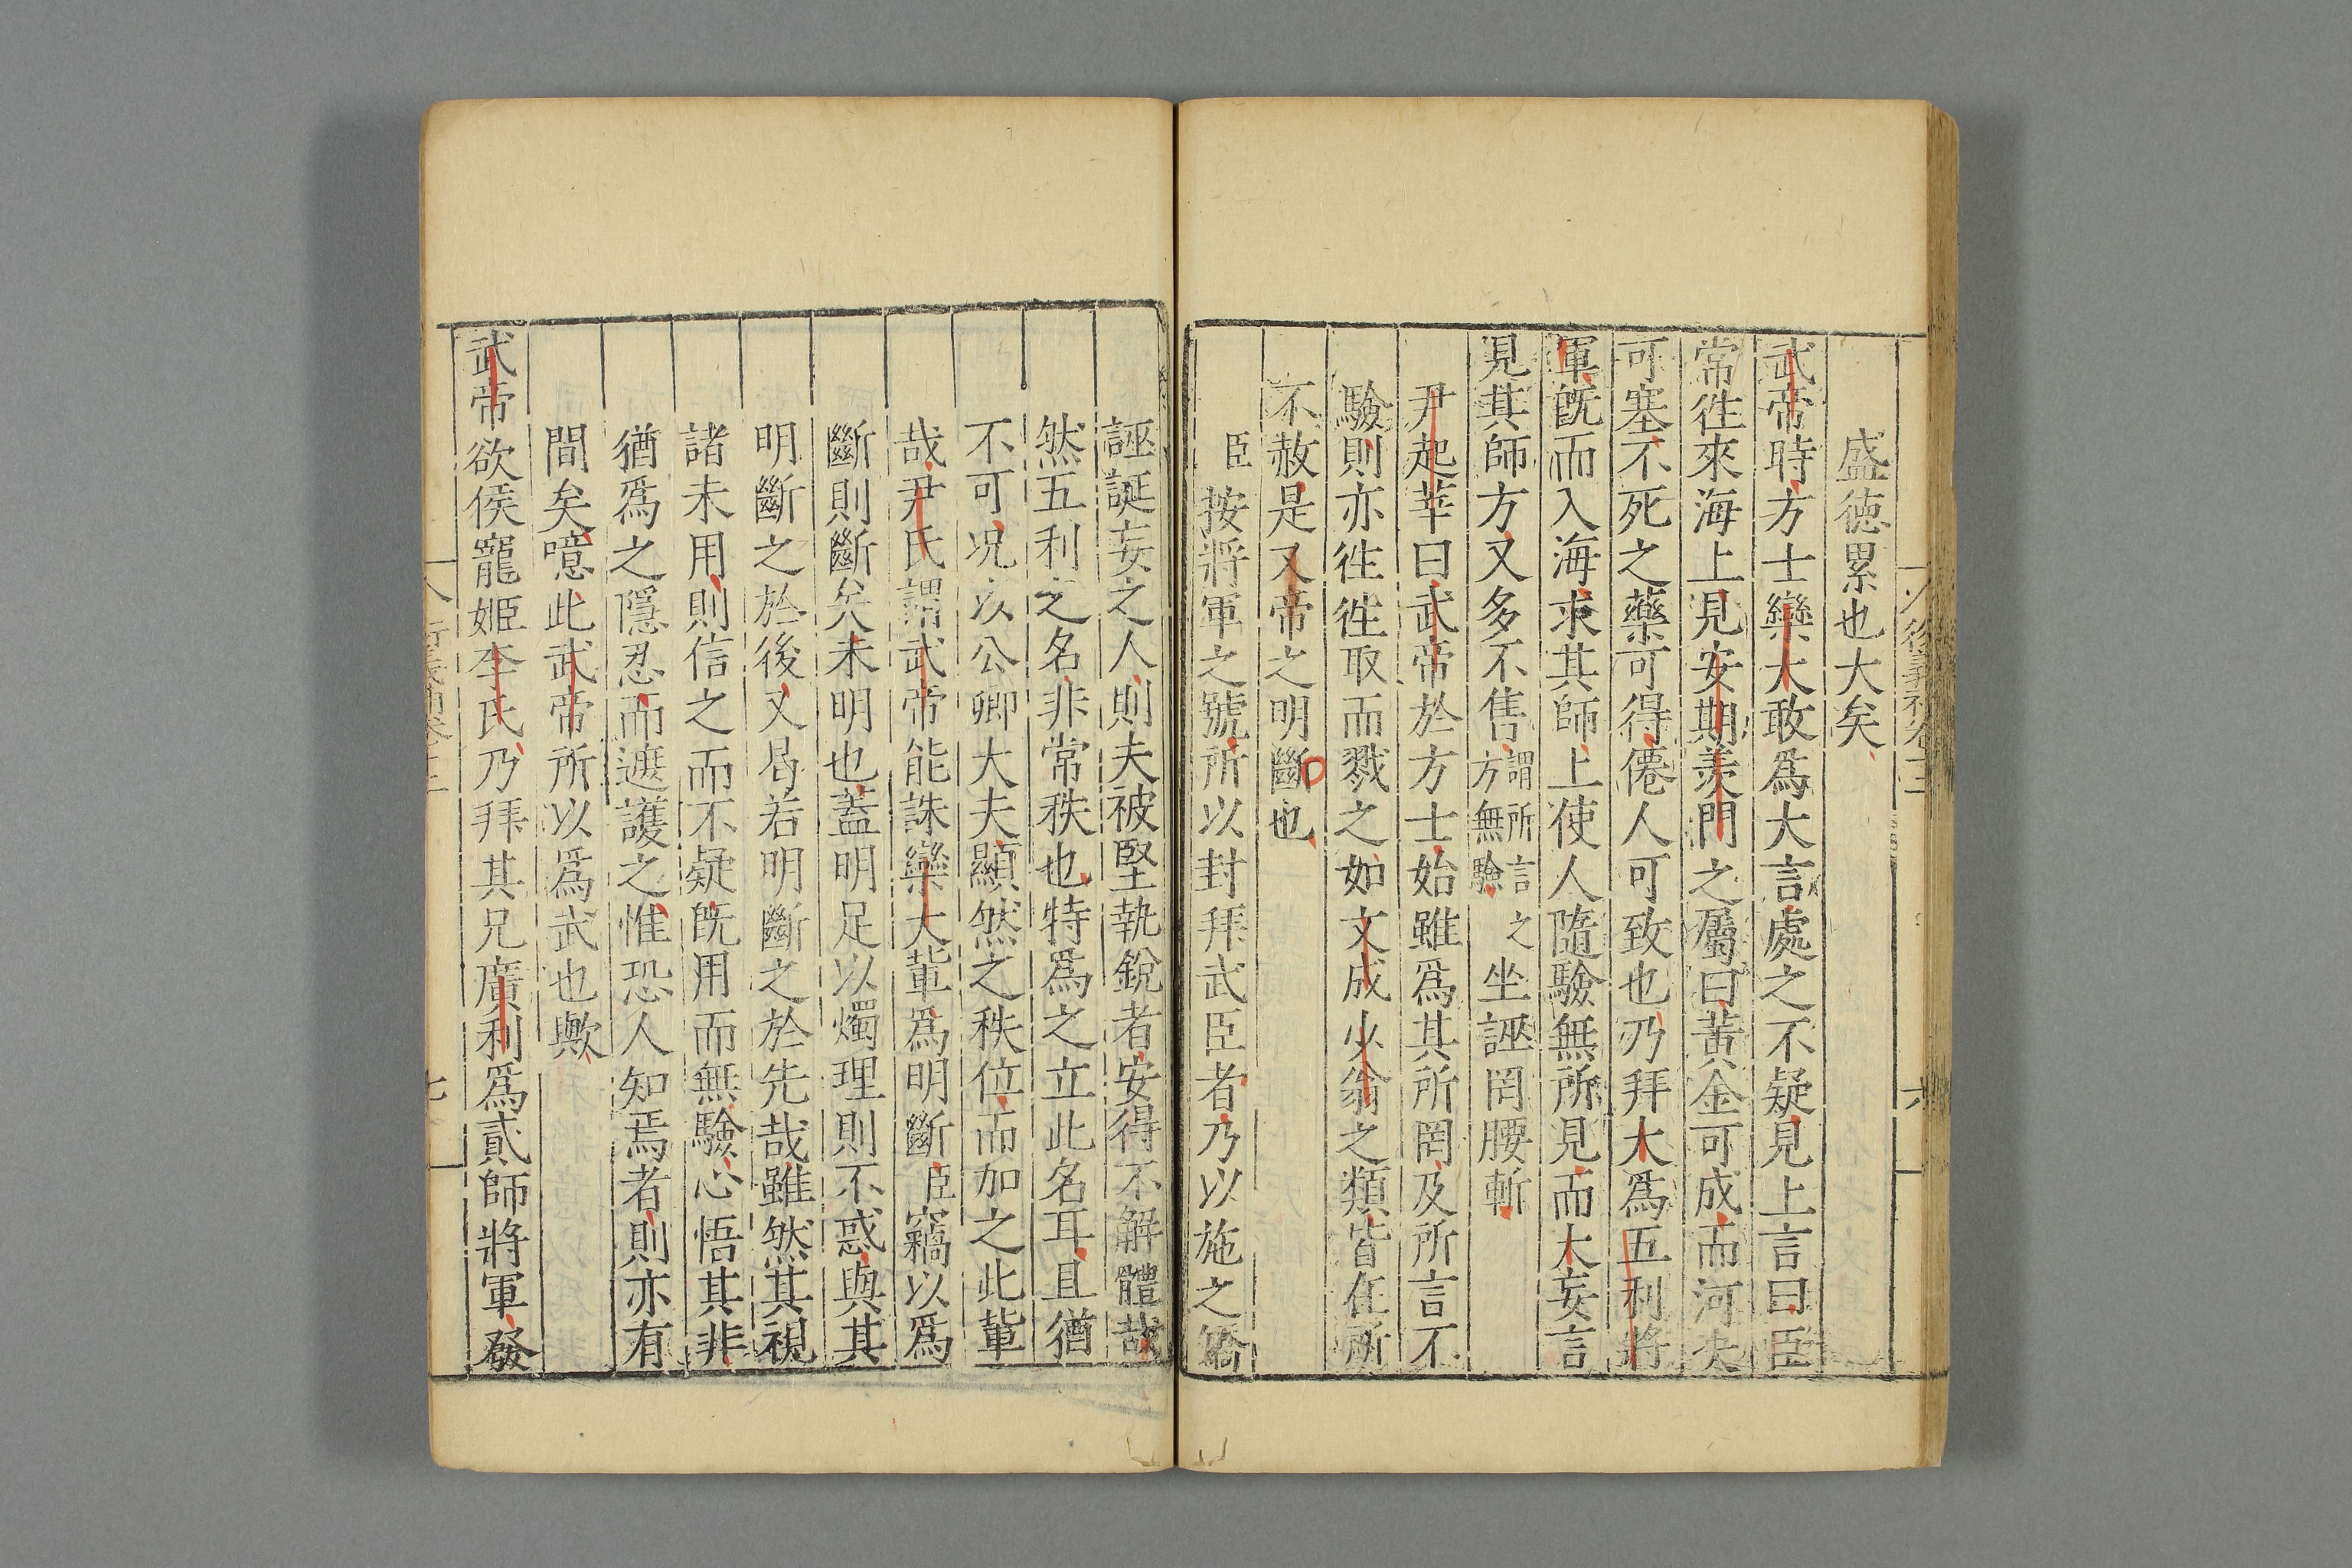 盛徳累也大矣
武帝時方士欒大敢爲大言處之不疑見上言曰臣
常徃來海上見安期羨門之屬曰黃金可成而河决
可塞不死之藥可得僊人可致也乃拜大爲五利將
軍旣而入海求其師上使人隨驗無所見而大妄言
見其師方又多不售謂所言方無驗之坐誣罔腰斬
尹起莘曰武帝於方士始雖爲其所罔及所言不
驗則亦徃徃取而戮之如文成少翁之類皆在所
不赦是又帝之明斷也
臣按將軍之號所以封拜武臣者乃以施之矯
誣誕妄之人則夫被堅執銳者安得不解體哉
然五利之名非常秩也特爲之立此名耳且猶
不可况以公卿大夫顯然之秩位而加之此輩
哉尹氏謂武帝能誅欒大輩爲明斷臣竊以爲
斷則斷矣未明也蓋明足以燭理則不惑與其
明斷之於後又曷若明斷之於先哉雖然其視
諸未用則信之而不疑旣用而無驗心悟其非
猶爲之隱忍而遮護之惟恐人知焉者則亦有
間矣噫此武帝所以爲武也歟
武帝欲侯寵姬李氏乃拜其兄廣利爲貳師將軍發